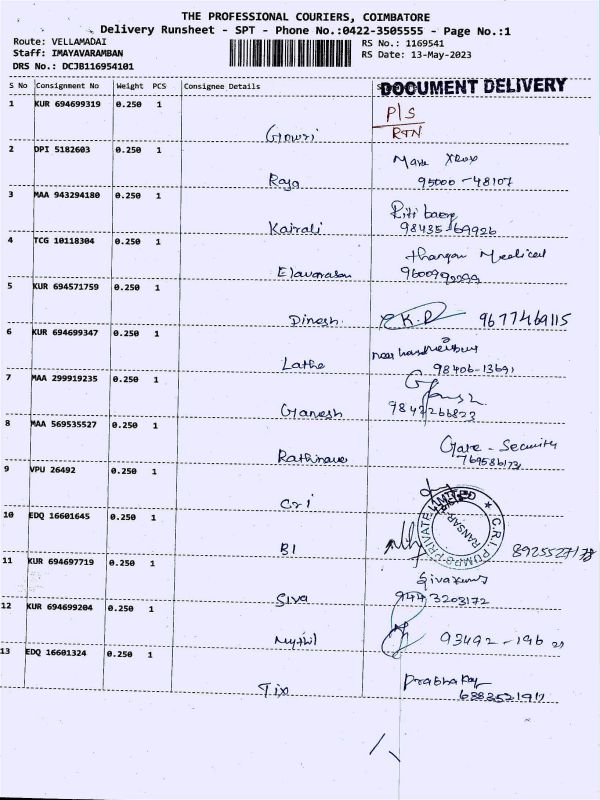 THE PROFESSIONAL COURIERS, COIMBATORE
Delivery Runsheet - SPT - Phone No.:0422-3505555 - Page No.:1
Route: VELLAMADAI RS No.: 1169541
Staff: IMAYAVARAMBAN RS Date: 13-May-2023
DRS No.: DCJB116954101
DOCUMENT DELIVERY
S No Consignment No Weight PCS Consignee Details
1 KUR 694699319 0.250 1
P/S
RTN
Gowri
2 DPI 5182603 0.250 1
Xerox
Raja 95000-48107
3 MAA 943294180 0.250 1
Kairali 98435-69926
4 TCG 10118304 0.250 1
thangam Medical
Elavarasan
5 KUR 694571759 0.250 1
Dinesh 9677469115
6 KUR 694699347 0.250 1
Latha 98406-13691
7 MAA 299919235 0.250 1
Ganesh 9842266823
8 MAA 569535527 0.250 1
Gate - Security
9 VPU 26492 0.250 1
Cri
10 EDQ 16601645 0.250 1
C.R.I. PUMPS PRIVATE LIMITED
BI
11 KUR 694697719 0.250 1
Sivakumar
Siva 9443203172
12 KUR 694699204 0.250 1
93492-196
13 EDQ 16601324 0.250 1
Prabhakar
Tix